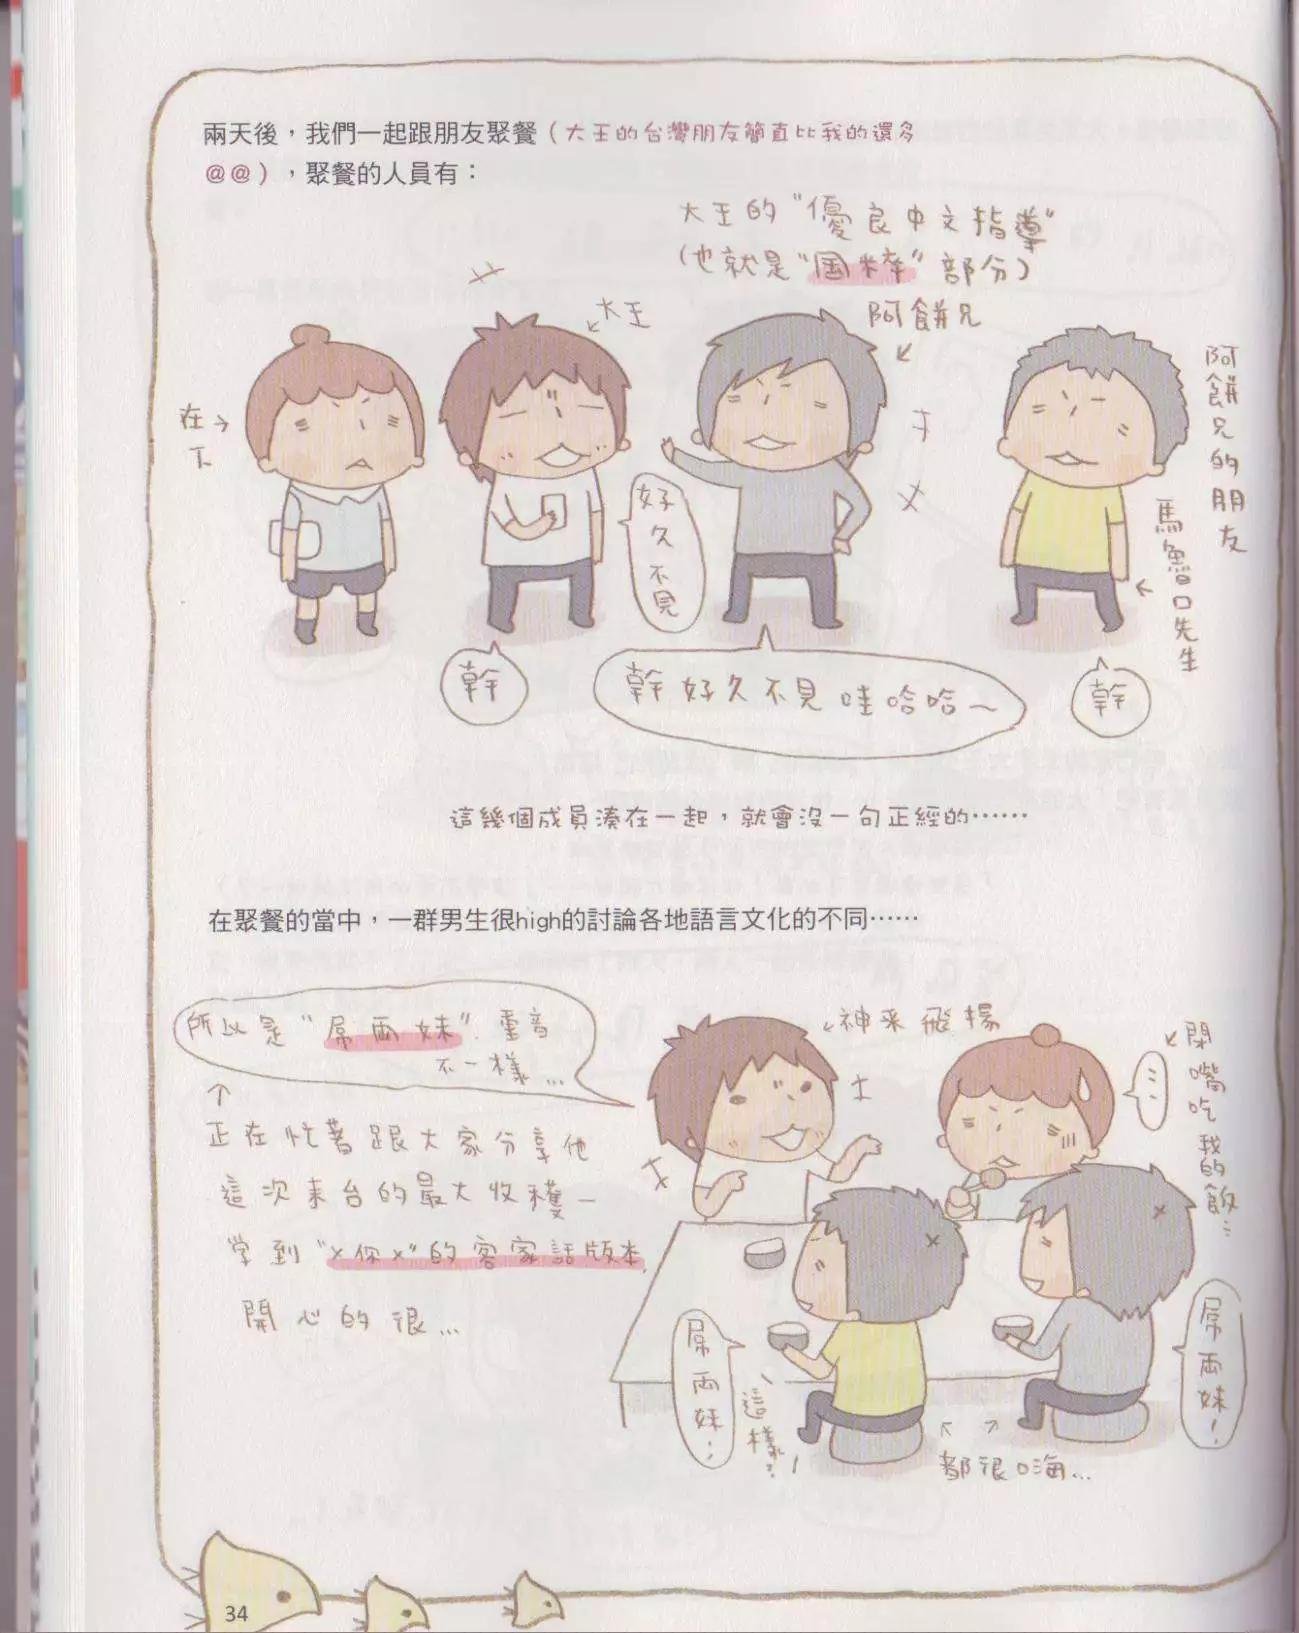 兩天後，我們一起跟朋友聚餐（大王的台灣朋友簡直比我的還多
@@），聚餐的人員有：
大王的"優良中文指導"
(也就是"国粹"部分)
阿餅兄
大王
在下
阿餅兄的朋友
馬魯口先生
好久不見
幹
幹好久不見哇哈哈~
幹
這幾個成員湊在一起，就會沒一句正經的……
在聚餐的當中，一群男生很high的討論各地語言文化的不同……
所以是"屌兩妹".重音
不一樣...
正在忙著跟大家分享他
這次來台的最大收穫—
學到"x你x"的客家話版本,
開心的很...
神采飛揚
閉嘴吃我的飯...
屌兩妹...
這樣?!
屌兩妹!
都很嗨...
34